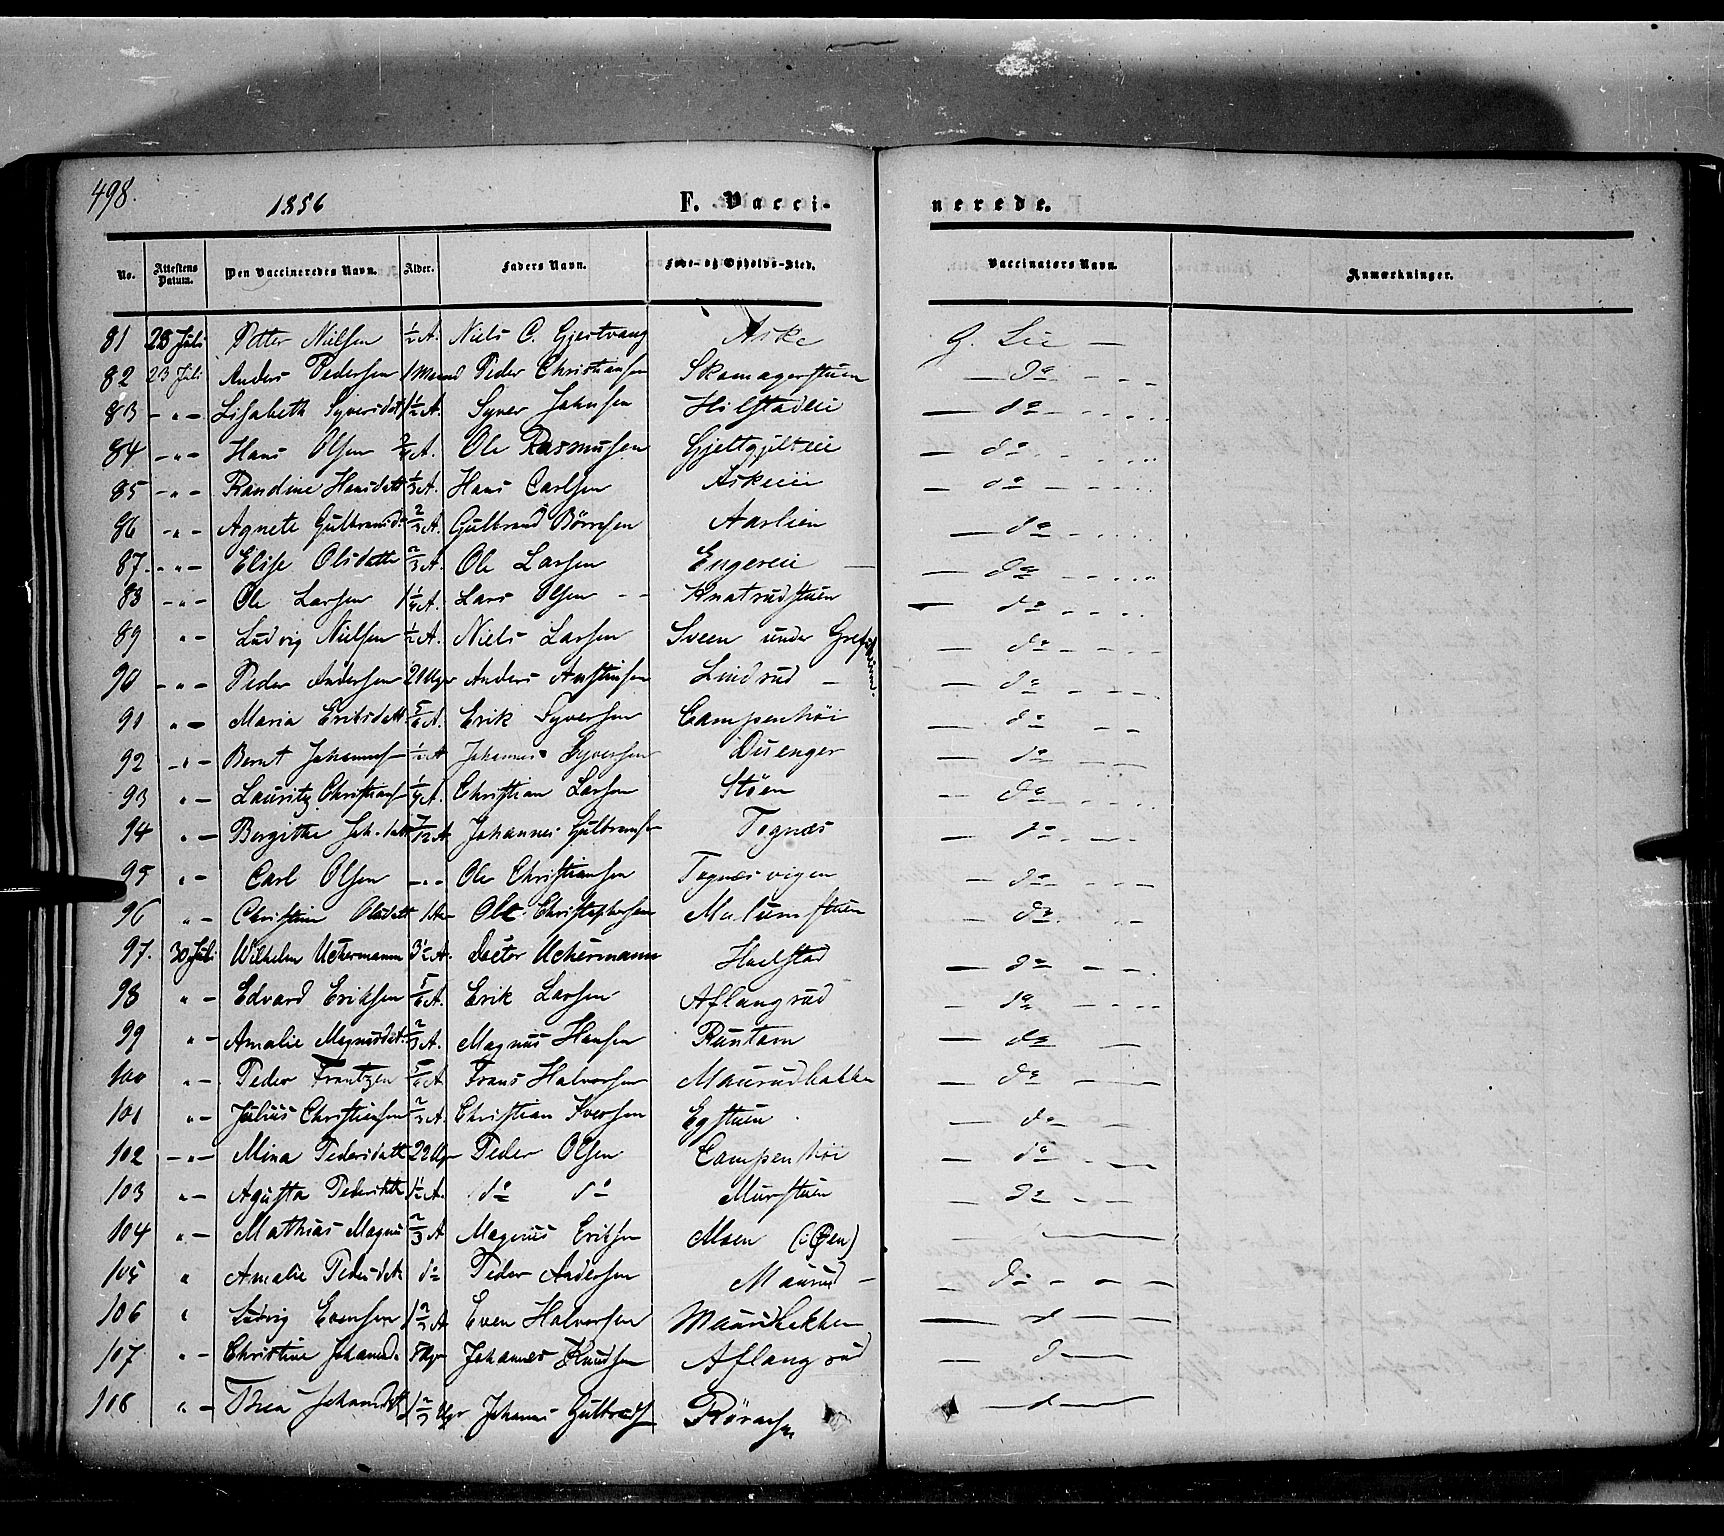 498.
1856 F. Vacci- nerede.
No. Attestens Datum. Den Vaccineredes Navn. Alder. Faders Navn. Føde- og Opholds-Sted. Vaccinators Navn. Anmærkninger.
81 23 Juli Petter Nielsen ½ A. Niels C. Gjestvang Aske G. Lie —
82 23 Juli Anders Pedersen 1 Maaned Peder Christiansen Skomagerstuen — do
83 – " – Lisabeth Syversdatt 1½ A. Syver Johnsen Hilstadeie — do
84 – " – Hans Olsen ¾ A. Ole Rasmussen — do
85 – " – Randine Hansdatt ⅓ A. Hans Carlsen Askeeie — do
86 – " – Agnete Gulbransd. ⅔ A. Gulbrand Børresen Aaslien — do
87. – " – Elise Olsdatt ⅔ A. Ole Larsen Engereie — do
88 – " – Ole Larsen 1¼ A. Lars Olsen Knatrudstuen — do
89 " – Ludvig Nielsen ½ A. Niels Larsen Sveen under Grefsheim. — do
90 – " – Peder Andersen 21 Uger Anders Anstensen Lindrud — do
91 " – Maria Eriksdatt ⅚ A. Erik Syversen Campenhöi — do
92 – " – Bernt Johannes ½ A Johannes Syversen Duenger — do
93 " – Lauritz Christians ¼ A. Christian Larsen Stöen — do
94 " – Bergitha Joh.datt 7/12 A Johannes Gulbransen Tognæs — do
95 " – Carl Olsen – " – Ole Christiansen Tognæsvigen — do
96 " – Christine Olsdatt 1 Aar Ole Christophersen Malumstuen — do
97. 30 Juli Wilhelm Uchermann 3½ A. Doctor Uchermann Hoelstad — do
98 " – Edvard Eriksen ⅚ A. Erik Larsen Aflangrud — do
99 " – Amalie Magnusdat. ⅔ A. Magnus Hansen Runtom — do
100 " – Peder Frantzen ⅚ A Frans Halvorsen Maurudbakken — do
101 " – Julius Christiansen ⅔ A. Christian Iversen Egstuen — do
102 – " – Mina Pedersdatt 22 Uger Peder Olsen Campenhöi — do
103 " – Agusta Pedersdtt 1½ A. do do Murstuen — do
104 " – Mathias Magnus ⅔ A Magnus Eriksen Moen (i Øen) —
105 " Amalie Pedersdat. do Peder Andersen Maurud — do
106 " Ludvig Evensen 1⅔ A Even Halvorsen Maurudbakken — d —
107. " – Christine Johannd. 8 Uger Johannes Knudsen Aflangrud — d —
108 " – Thea Johannes Gulbrands — d —